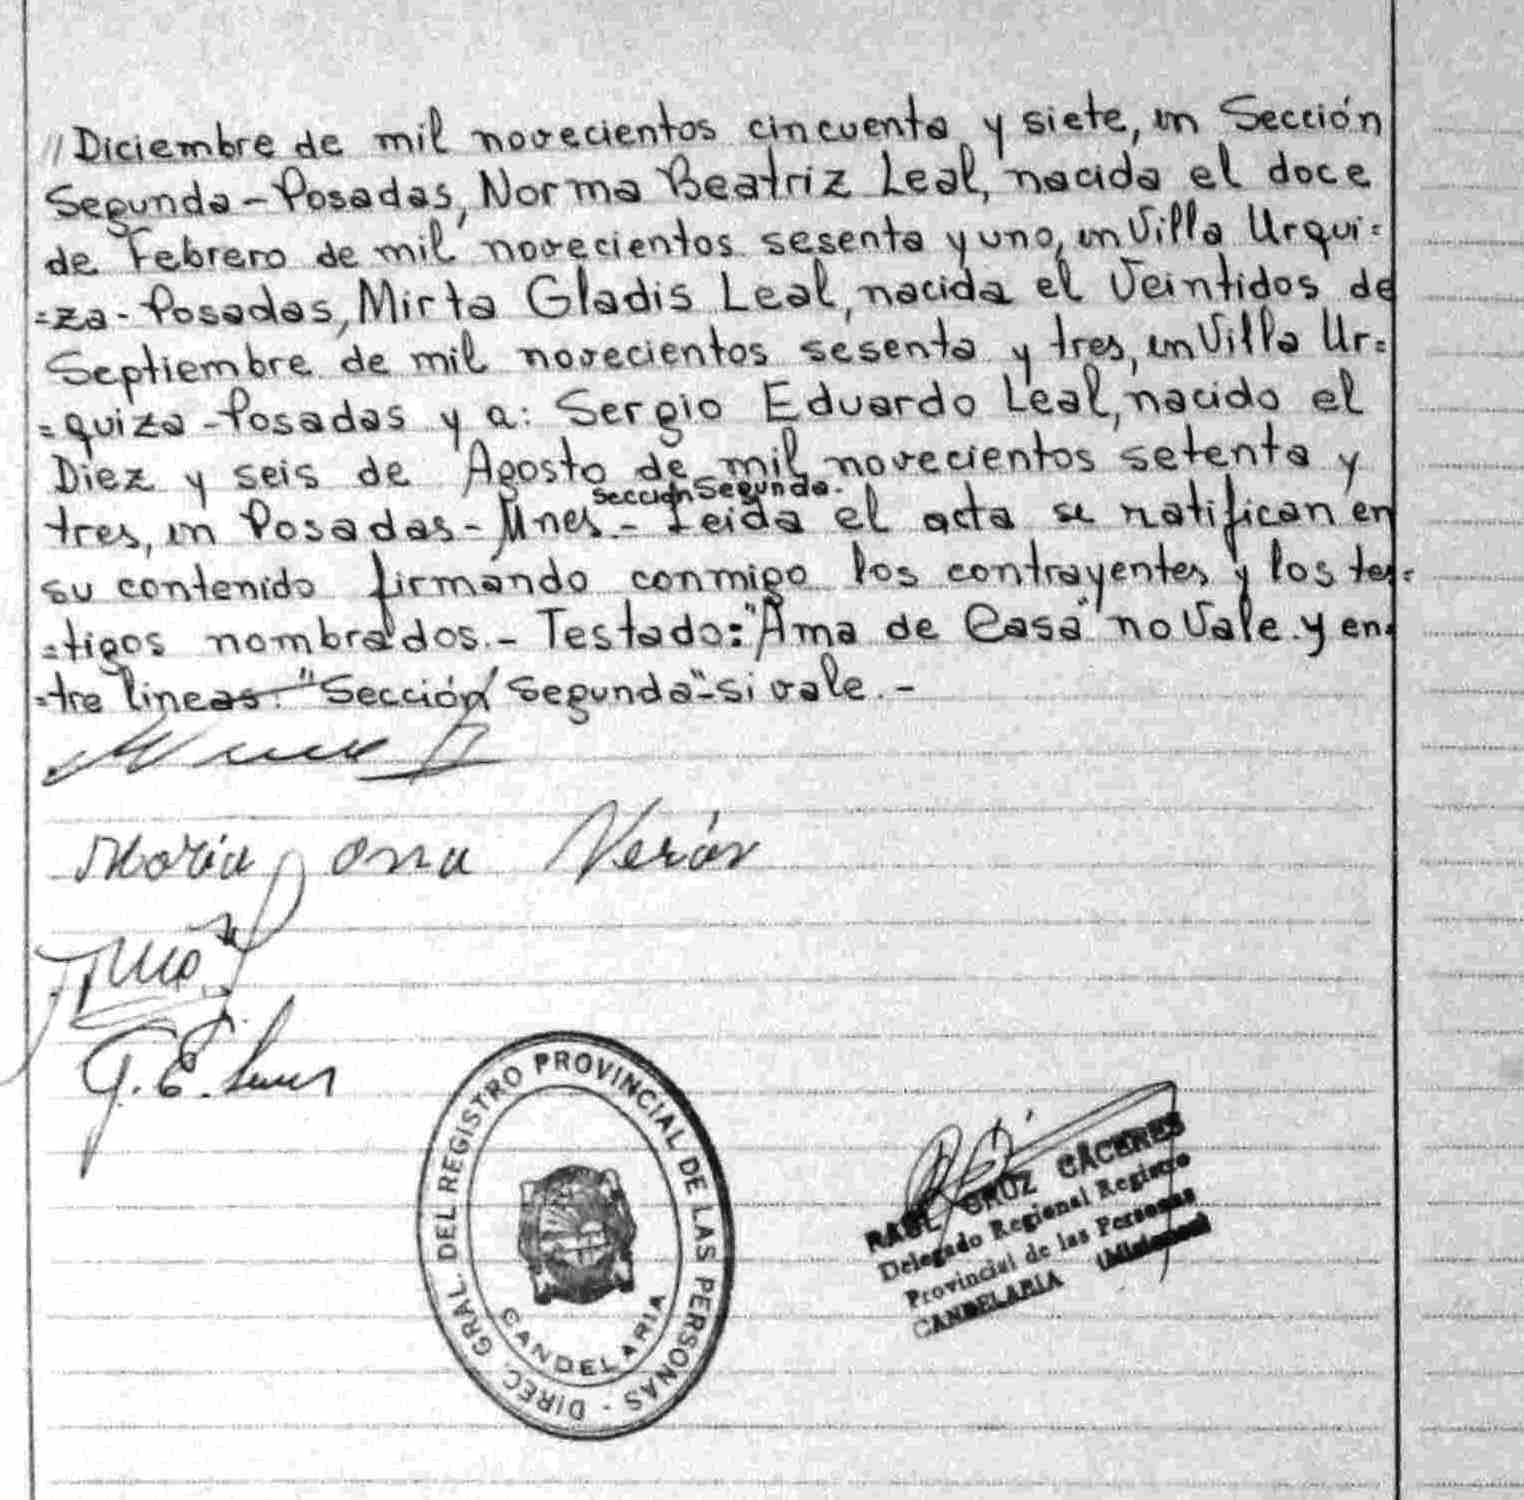 // Diciembre de mil novecientos cincuenta y siete, en Sección
Segunda - Posadas, Norma Beatriz Leal, nacida el doce
de Febrero de mil novecientos sesenta y uno, en Villa Urqui=
=za - Posadas, Mirta Gladis Leal, nacida el Veintidos de
Septiembre de mil novecientos sesenta y tres, en Villa Ur=
=quiza - Posadas y a: Sergio Eduardo Leal, nacido el
Diez y seis de Agosto de mil novecientos setenta y
Sección Segunda.
tres, en Posadas - Mnes. - Leida el acta se ratifican en
su contenido firmando conmigo los contrayentes y los tes=
=tigos nombrados. - Testado: "Ama de Casa" no Vale y en=
=tre lineas: "Sección Segunda" - si vale. -
Maria ona Verón
G. E.
DIREC. GRAL. DEL REGISTRO PROVINCIAL DE LAS PERSONAS -
CANDELARIA
RAUL CRUZ CÁCERES
Delegado Regional Registro
Provincial de las Personas
CANDELARIA (Misiones)